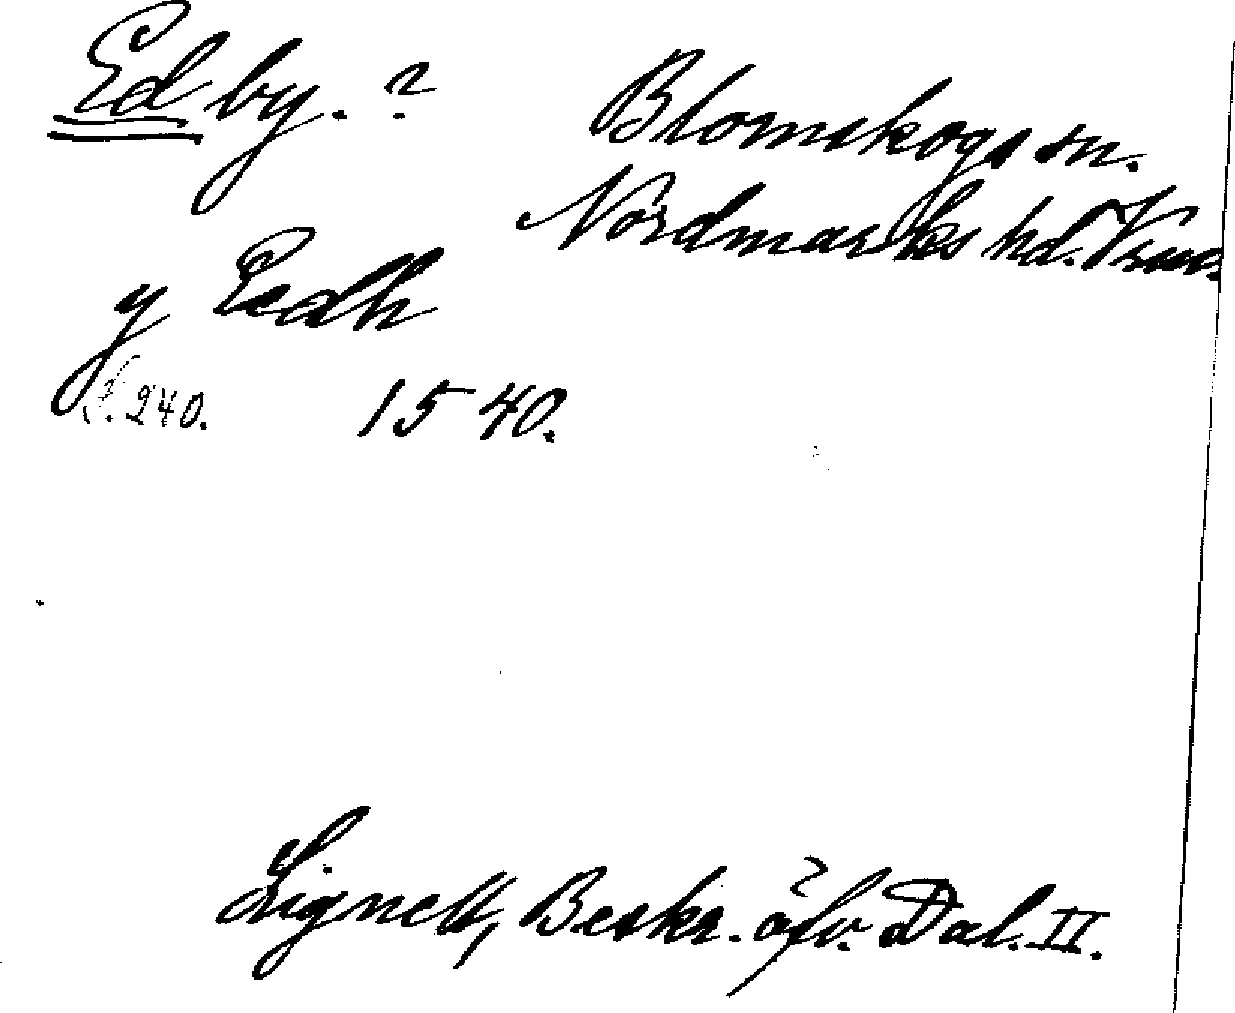 Ed by. ? Blomskogs sn.
Nordmarks hd. Vrml.
y Eedh
S. 240. 1540.
Lignell, Beskr. öfv. Dal. II.